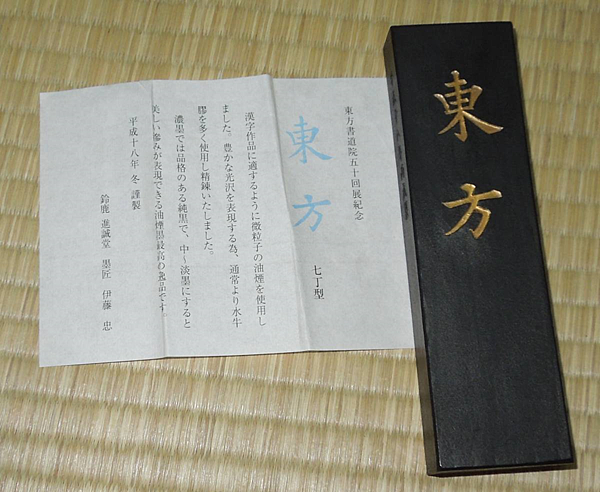 東方書道院五十回展紀念
東方
七丁型
漢字作品に適するように微粒子の油煙を使用し
ました。豊かな光沢を表現する為、通常より水牛
膠を多く使用し精錬いたしました。
濃墨では品格のある純黒で、中～淡墨にすると
美しい滲みが表現できる油煙墨最高の逸品です
平成十八年 冬 謹製
鈴鹿 進誠堂 墨匠 伊藤 忠
東方